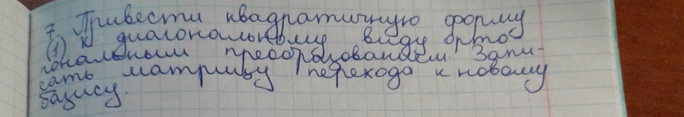 7. Привести квадратичную форму
(1) к диагональному виду орто-
гональным преобразованием. Запи-
сать матрицу перехода к новому
базису.